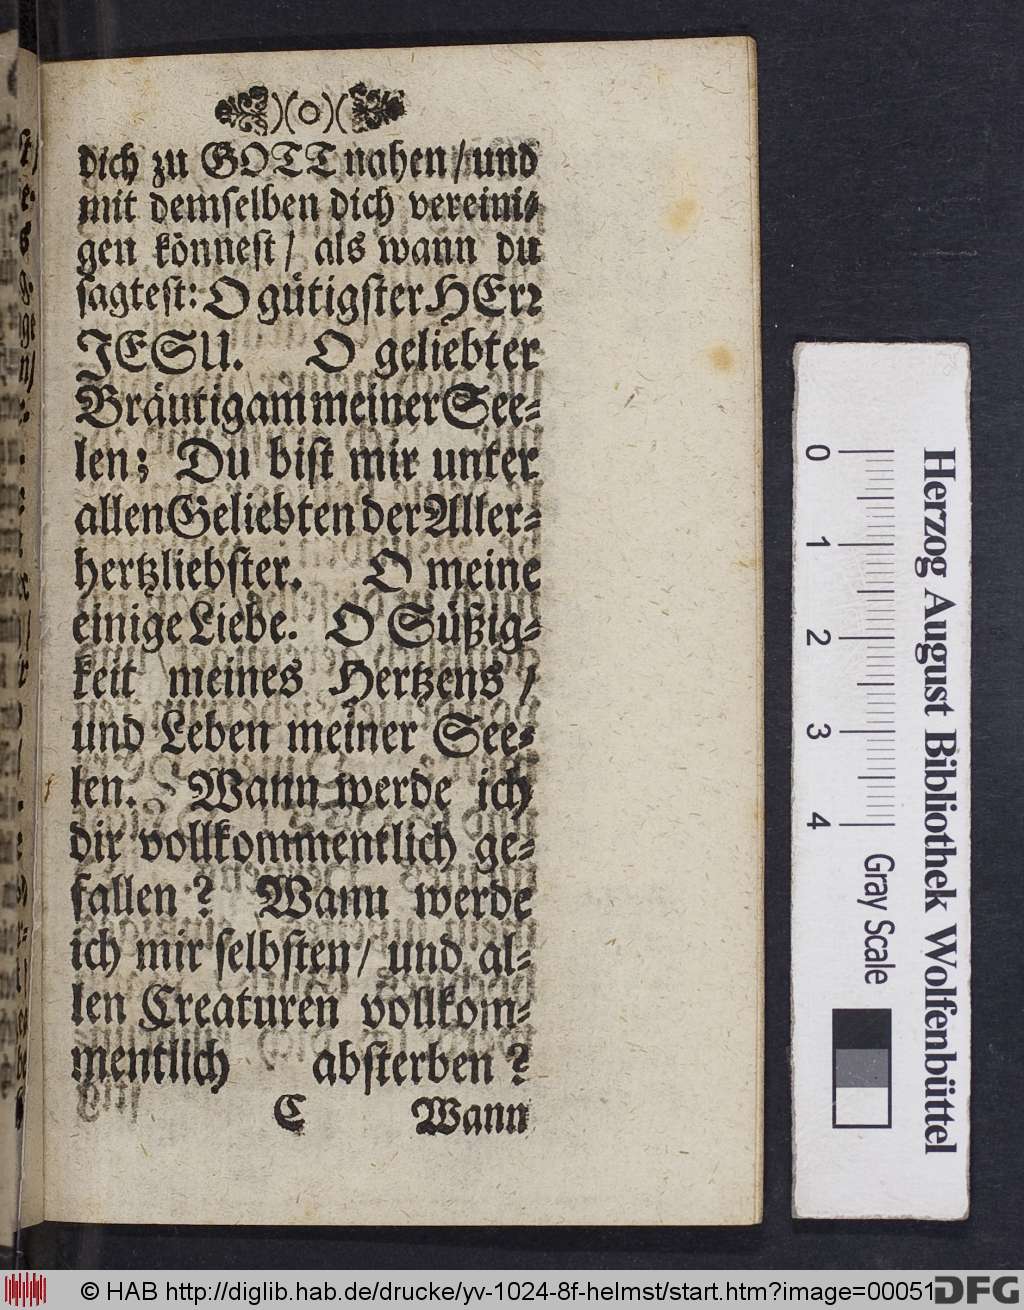 )(o)(
dich zu GOTT nahen / und
mit demselben dich vereini-
gen könnest / als wann du
sagtest: O gütigster HErr
JESU. O geliebter
Bräutigam meiner See-
len; Du bist mir unter
allen Geliebten der Aller-
hertzliebster. O meine
einige Liebe. O Süßig-
keit meines Hertzens /
und Leben meiner See-
len. Wann werde ich
dir vollkommentlich ge-
fallen? Wann werde
ich mir selbsten / und al-
len Creaturen vollkom-
mentlich absterben?
C Wann
0 1 2 3 4
Gray Scale
Herzog August Bibliothek Wolfenbüttel
© HAB http://diglib.hab.de/drucke/yv-1024-8f-helmst/start.htm?image=00051
DFG